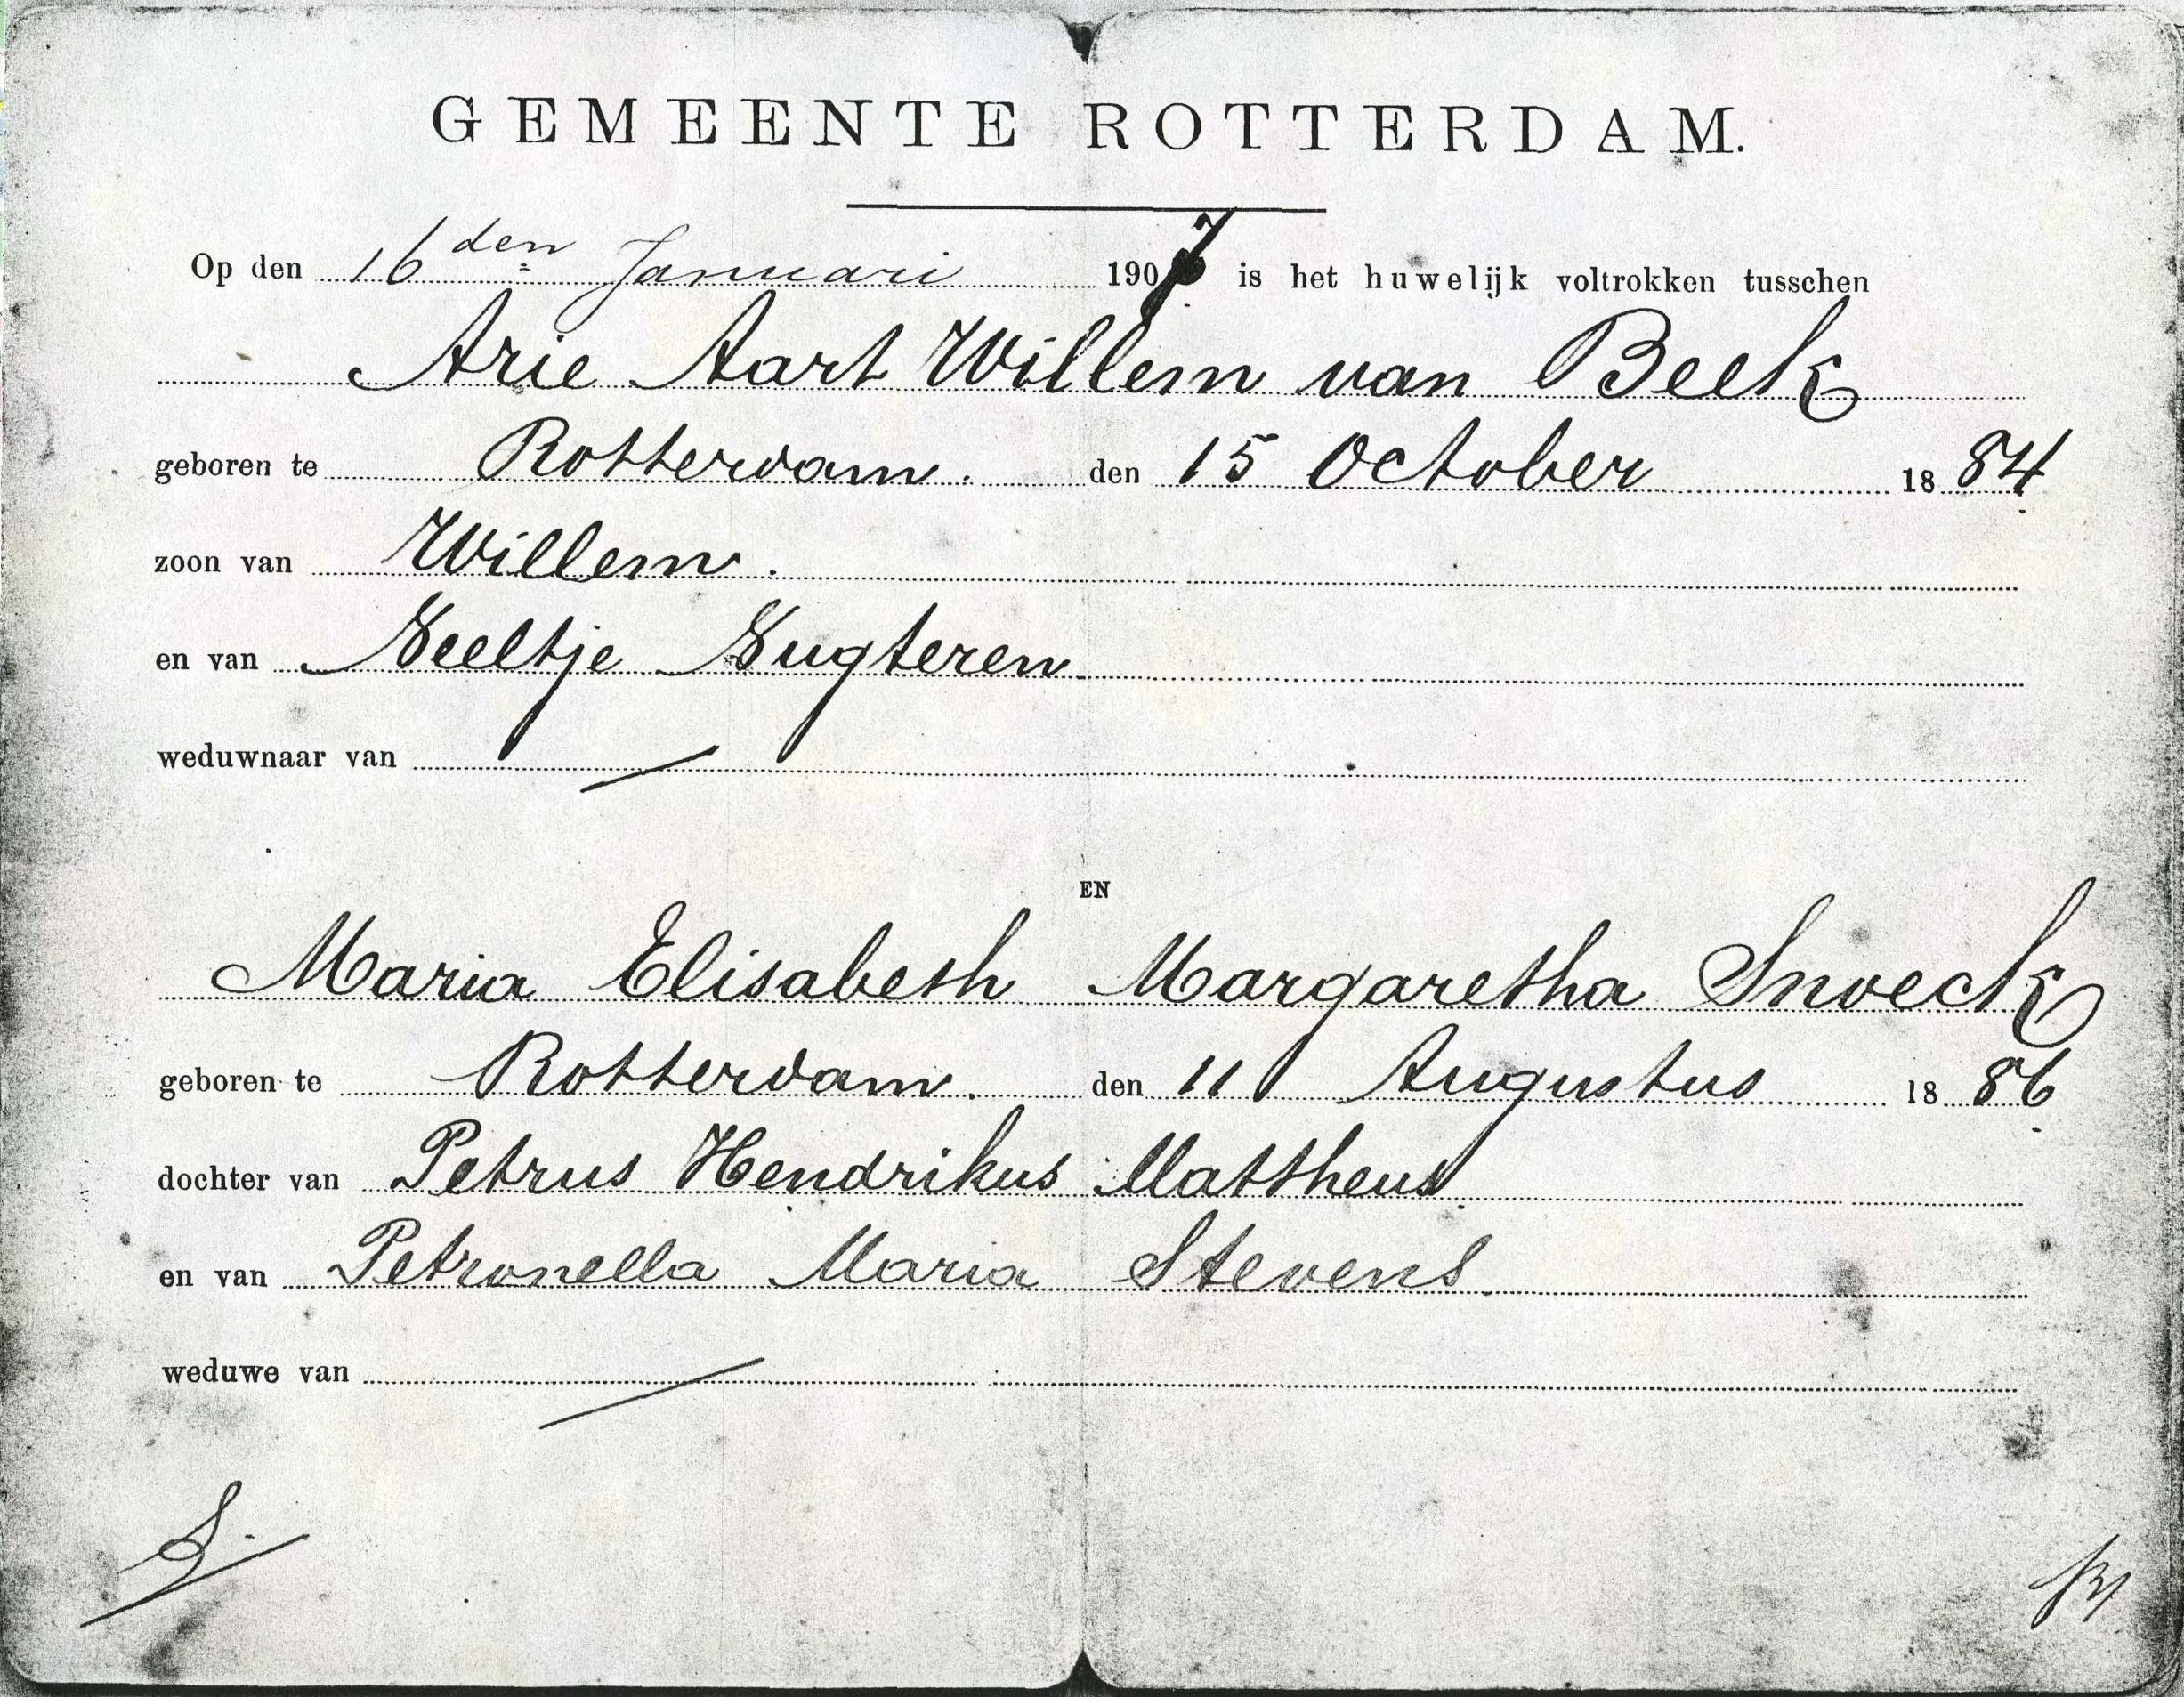 GEMEENTE ROTTERDAM.
Op den 16den Januari 1907 is het huwelijk voltrokken tusschen
Arie Aart Willem van Beek
geboren te Rotterdam. den 15 October 1884
zoon van Willem.
en van Neeltje Nugteren
weduwnaar van
EN
Maria Elisabeth Margaretha Snoeck
geboren te Rotterdam. den 11 Augustus 1886
dochter van Petrus Hendrikus Mattheus
en van Petronella Maria Stevens
weduwe van